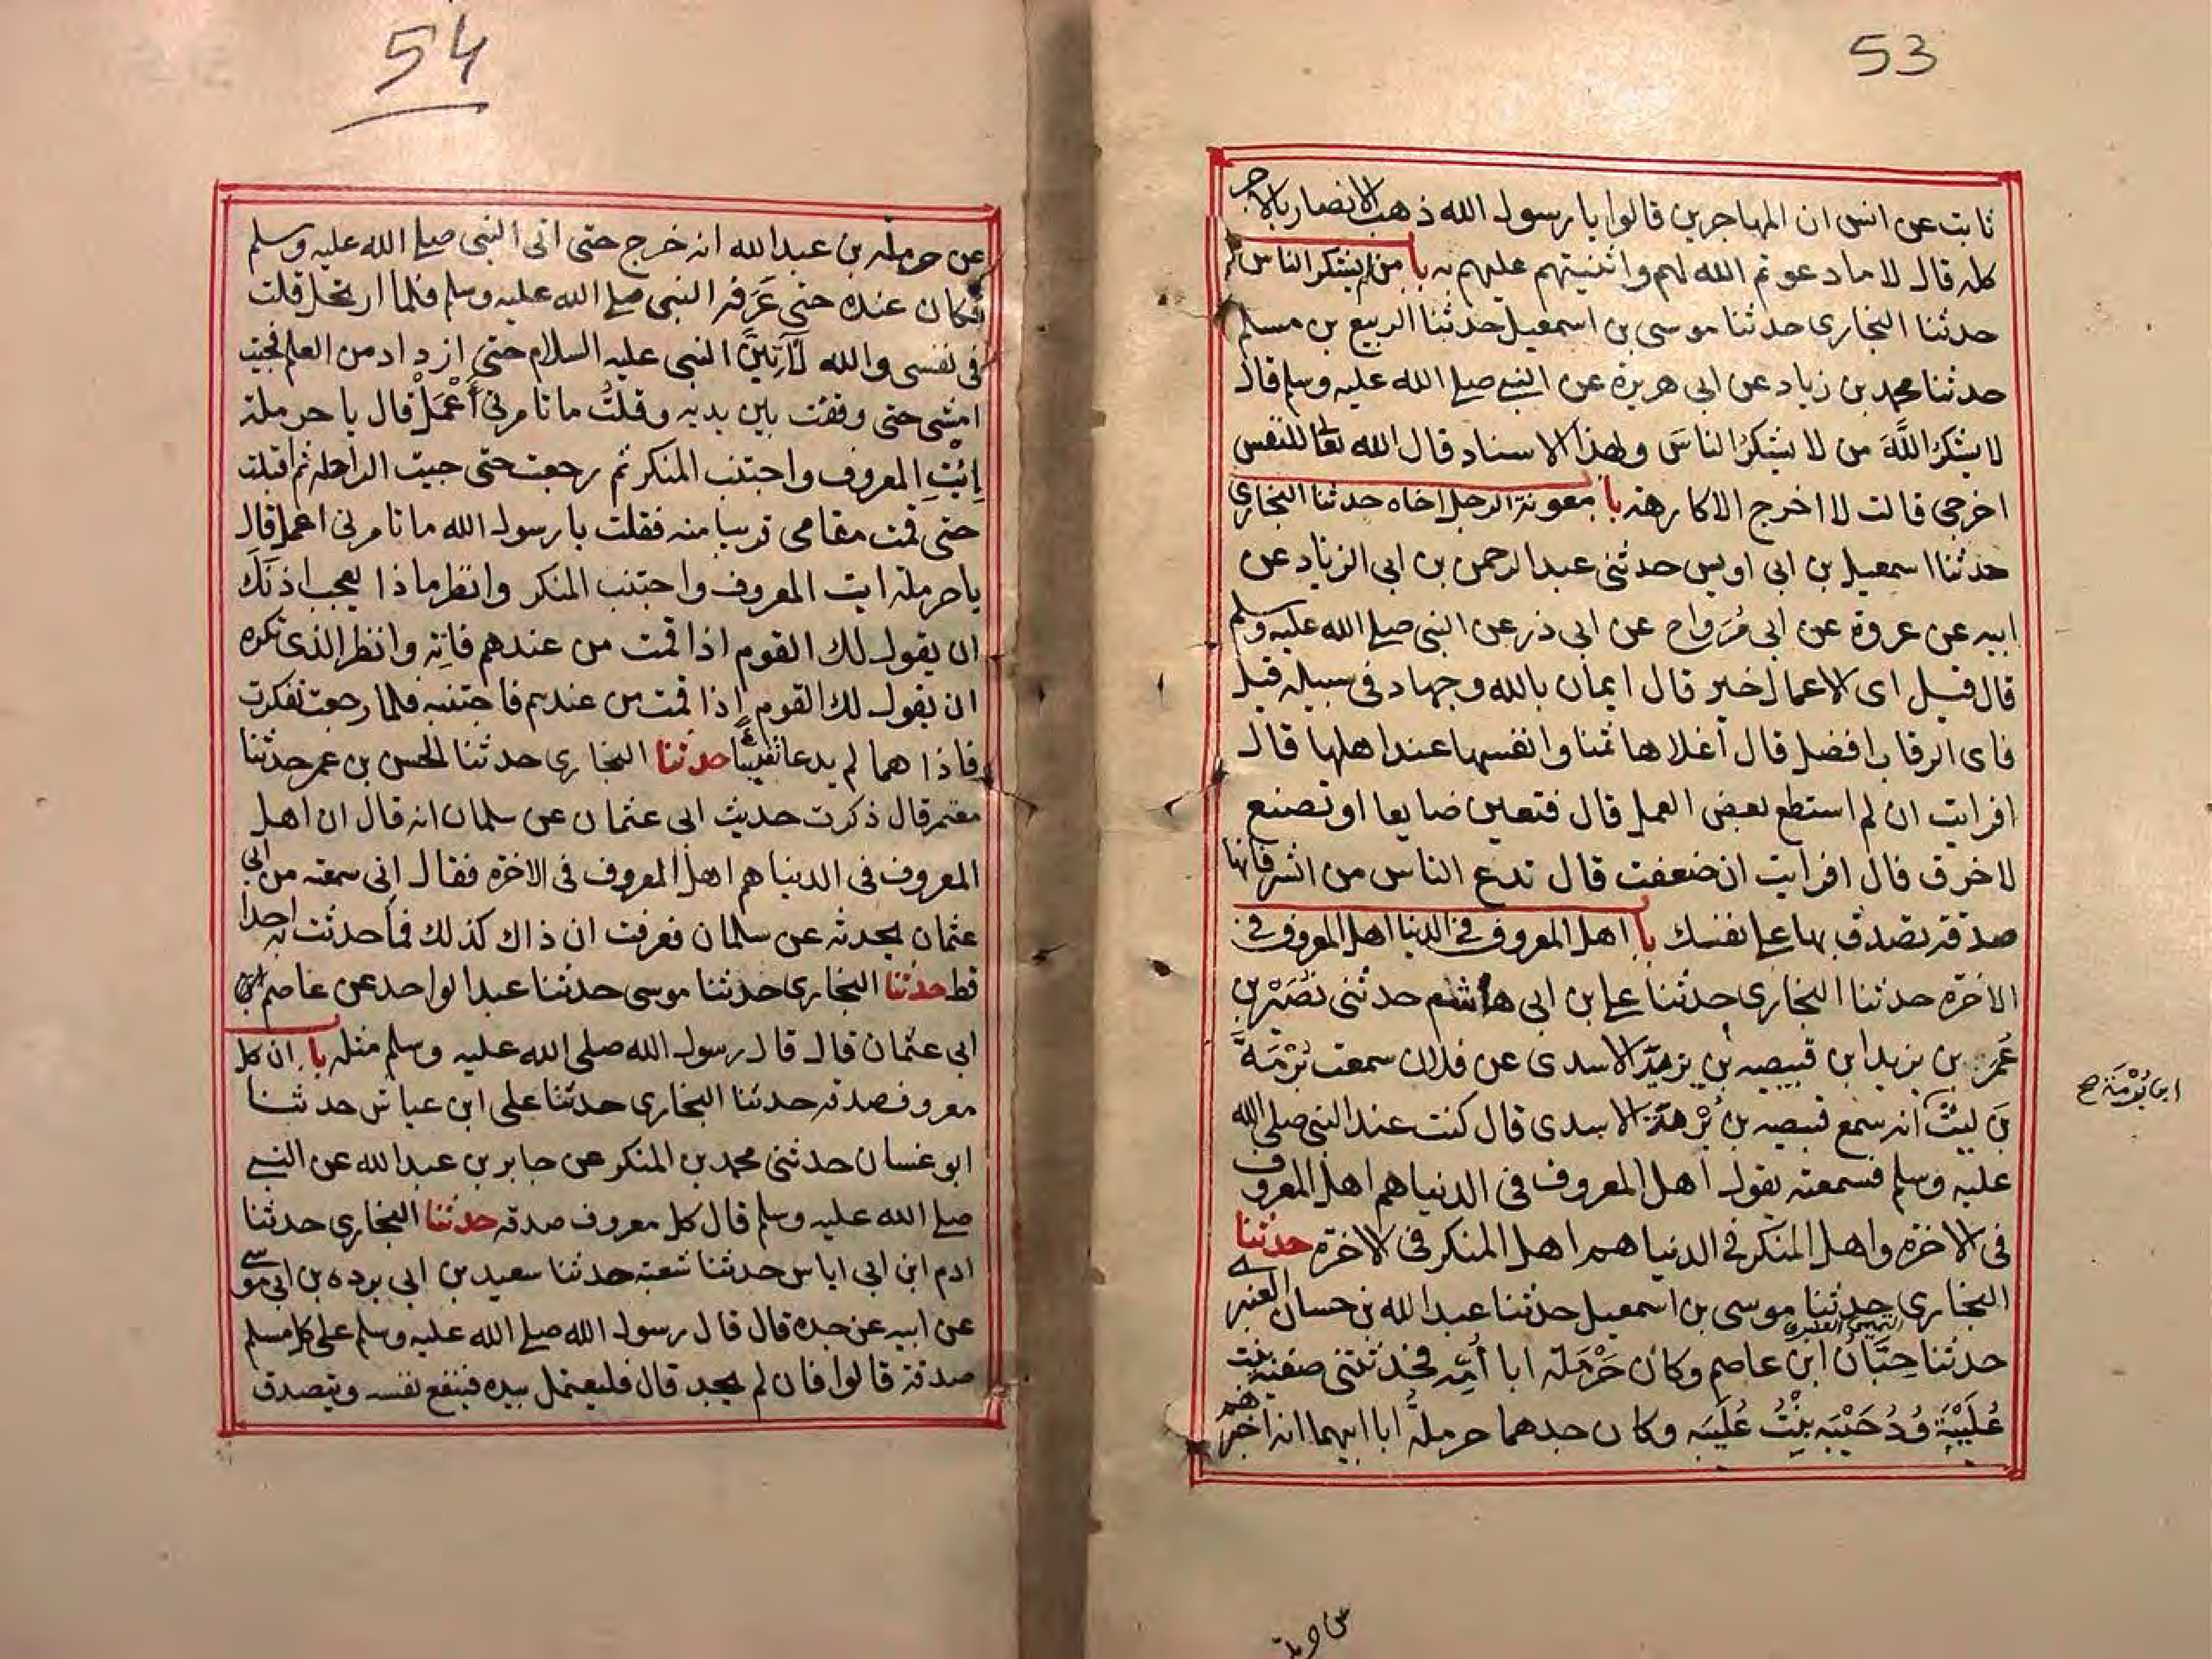 53
ثابت عن انس ان المهاجرين قالوا يا رسول الله ذهب الانصار بالاجر
كله قال لا ما دعوتم الله لهم واثنيتم عليهم به با من لم يشكر الناس
حدثنا البخاري حدثنا موسى بن اسمعيل حدثنا الربيع بن مسلم
حدثنا محمد بن زياد عن ابى هريرة عن النبي صلى الله عليه وسلم قال
لا يشكرُ اللَّهَ من لا يشكرُ الناسَ وبهذا الاسناد قال الله تعالى للنفس
اخرجي قالت لا اخرج الا كارهة با معونة الرجل اخاه حدثنا البخاري
حدثنا اسمعيل بن ابى اويس حدثنى عبد الرحمن بن ابى الزناد عن
ابيه عن عروة عن ابى مُرَواح عن ابى ذر عن النبى صلى الله عليه وسلم
قال قيل اى الاعمال خير قال ايمان بالله وجهاد فى سبيله قيل
فاى الرقاب افضل قال أغلاها ثمنا وانفسها عند اهلها قال
افرايت ان لم استطع بعض العمل قال فتعين ضايعا او تصنع
لاخرق قال افرايت ان ضعفت قال تدع الناس من الشر فانها
صدقة تصدق بها على نفسك با اهل المعروف فى الدنيا اهل المعروف فى
الاخرة حدثنا البخارى حدثنا على ابن ابى هاشم حدثنى نُصَيْر بن
عُمَر بن يزيد ابن قبيصه بن يزيد الاسدى عن فلان سمعت بُرْمَةَ
بن ليث أنه سمع قبيصه بن بُرْمة الاسدى قال كنت عند النبى صلى الله
ابن بُرْمَة صح
عليه وسلم فسمعته يقول اهل المعروف فى الدنيا هم اهل المعروف
فى الاخرة واهل المنكر فى الدنيا هم اهل المنكر فى الاخرة حدثنا
البخارى حدثنا موسى بن اسمعيل حدثنا عبد الله بن حسان العنبرى
حدثنا حِبَّانُ ابن عاصم وكان حَرْمَلة ابا أمِّه فحدثتنى صفية بنت
عُلَيْبَةَ وَدُحَيْبَه بِنْتُ عُلَيْبَه وكان جدهما حرملةُ ابا ابيهما انه اخبرهم
54
عن حرملة بن عبد الله انه خرج حتى اتى النبى صلى الله عليه وسلم
فكان عنده حتى عَرَفه النبى صلى الله عليه وسلم فلما ارتحل قلت
فى نفسى والله لَآتِيَنَّ النبى عليه السلام حتى ازداد من العلم فجيت
امشى حتى وقفت بين يديه وقلتُ ما تامرنى أَعْمَلْ قال يا حرملة
إِئْتِ المعروف واجتنب المنكر ثم رجعت حتى جيت الراحلة ثم اقبلت
حتى قمت مقامى قريبا منه فقلت يا رسول الله ما تامرنى اعمل قال
يا حرملة ايت المعروف واجتنب المنكر وانظر ما ذا يعجب اذنك
ان يقول لك القوم اذا قمت من عندهم فاته وانظر الذى تكره
ان يقول لك القوم إذا قمت من عندهم فاجتنبه فلما رجعت تفكرت
فاذا هما لم يدعا شيئًا حدثنا البخارى حدثنا الحسن بن عمر حدثنا
معتمر قال ذكرت حديث ابى عثمان عن سلمان انه قال ان اهل
المعروف فى الدنيا هم اهل المعروف فى الاخرة فقال انى سمعته من ابى
عثمان يحدثه عن سلمان فعرفت ان ذاك كذلك فما حدثت به احدا
قط حدثنا البخارى حدثنا موسى حدثنا عبد الواحد عن عاصم عن
ابى عثمان قال قال رسول الله صلى الله عليه وسلم مثله با ان كل
معروف صدقة حدثنا البخارى حدثنا على ابن عياش حدثنا
ابو غسان حدثنى محمد بن المنكدر عن جابر بن عبد الله عن النبى
صلى الله عليه وسلم قال كل معروف صدقه حدثنا البخارى حدثنا
ادم ابن ابى اياس حدثنا شعبة حدثنا سعيد بن ابى برده بن ابى موسى
عن ابيه عن جده قال قال رسول الله صلى الله عليه وسلم على كل مسلم
صدقة قالوا فان لم يجد قال فليعتمل بيده فينفع نفسه ويتصدق